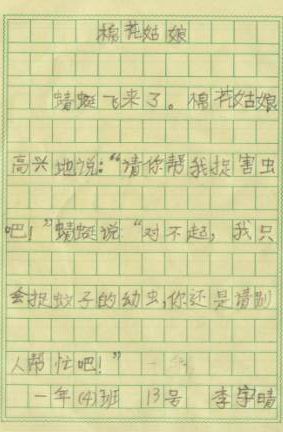 棉花姑娘
蜻蜓飞来了。棉花姑娘
高兴地说：“请你帮我捉害虫
吧！”蜻蜓说“对不起，我只
会捉蚊子的幼虫，你还是请别
人帮忙吧！”
一年(4)班 13号 李宇晴